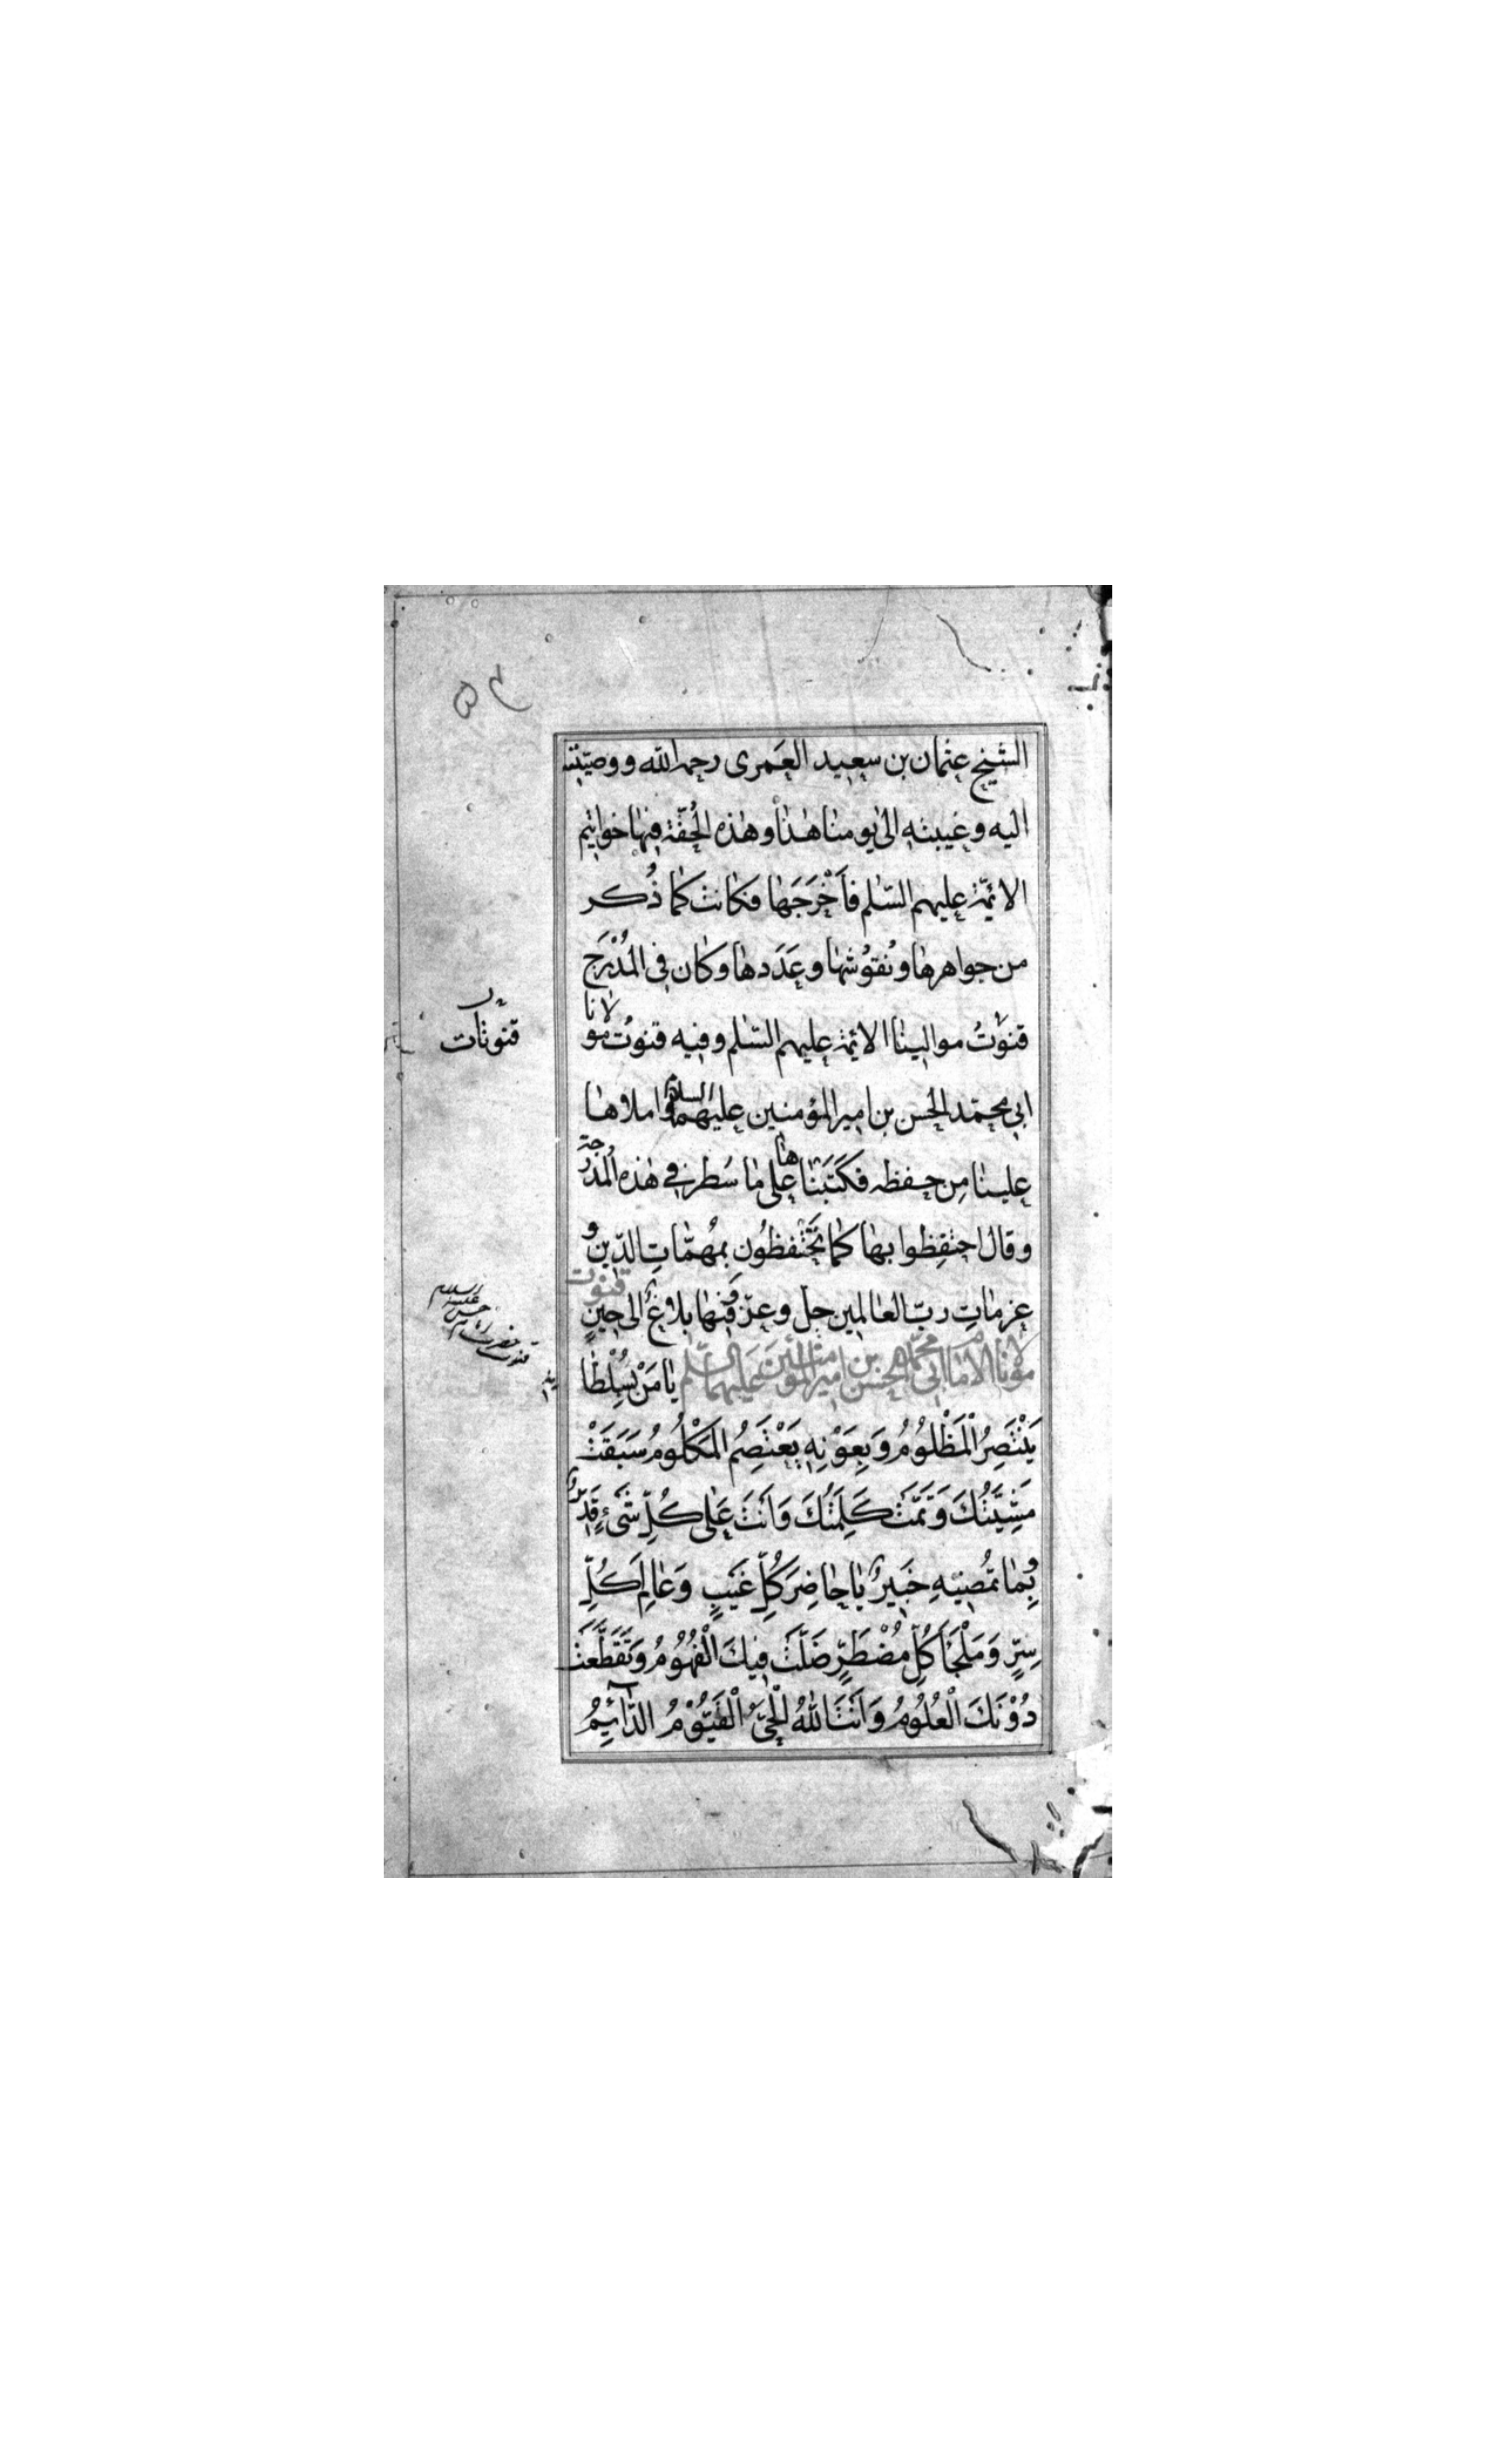 ۵۴
الشیخ عثمان بن سعید العمری رحمه الله و وصیّته
الیه و غیبته الی یومنا هذا و هذه الحُقّة فیها خواتیم
الائمّة علیهم السّلم فاَخْرَجَها فکانت کما ذُکر
من جواهرها و نُقوُشها و عَدَدها و کان فی المُدْرَج
قنوتُ موالینا الائمّة علیهم السّلم و فیه قنوتُ مولانا
ابی محمّد الحسن بن امیر المؤمنین علیهما السلام و املاها
علینا مِن حفظه فکَتَبْناها علی ما سُطر فی هذه المُدرجة
و قال احتفِظوا بها کما تَحْتَفظُون بمُهمّاتِ الدّین و
عزماتِ ربّ العالمین جلّ و عزّ و فیها بلاغٌ الی حینٍ
قنوت
مولانا الامام ابی محمّد الحسن بن امیر المؤمنین علیهما السّلم یا مَنْ بسُلْطا
نِهِ
یَنْتَصِرُ الْمَظْلوُمُ وَ بِعَوْنِهِ یَعْتَصِمُ الْمَکْلُومُ سَبَقَتْ
مَشِیَّتُکَ وَ تَمَّتْ کَلِمَتُکَ وَ اَنْتَ عَلی کُلِّ شَیْءٍ قَدِیرٌ
وَ بِما تُمْضِیهِ خَبِیرٌ یا حاضِرَ کُلِّ غَیْبٍ وَ عالِمَ کُلِّ
سِرٍّ وَ مَلْجَأَ کُلِّ مُضْطَرٍّ ضَلَّتْ فِیكَ الْفُهُومُ وَ تَقَطَّعَتْ
دُوْنَكَ الْعُلُومُ وَ اَنْتَ اللّٰهُ الْحَیُّ الْقَیُّوْمُ الدّٰائِمُ
قنوتات
قنوت حضرت امام حسن علیه السلام